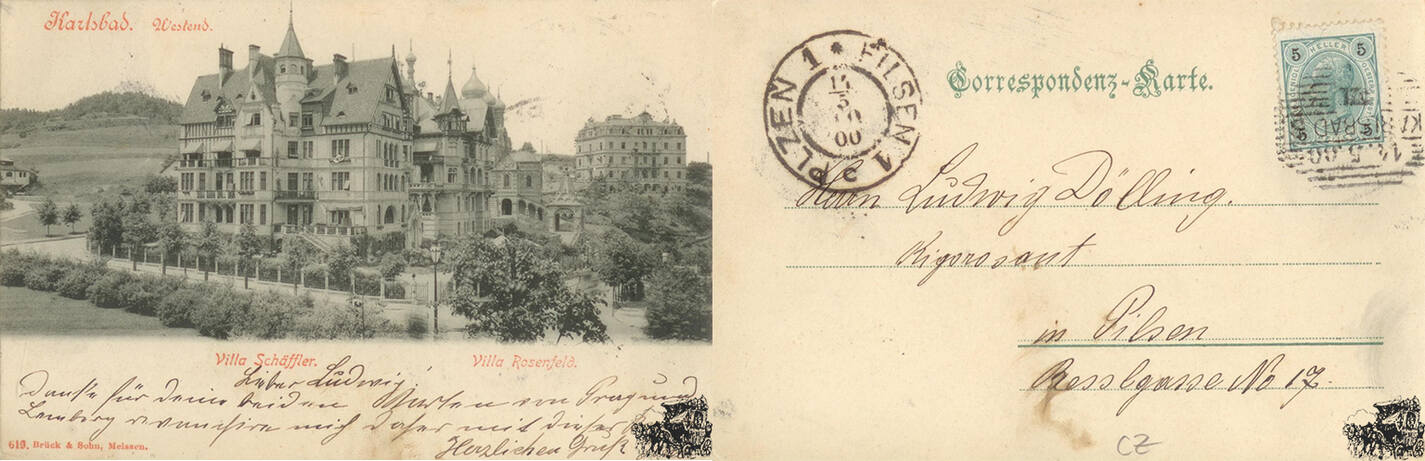 Karlsbad. Westend.
Villa Schäffler. Villa Rosenfeld.
Lieber Ludwig!
Danke für deine beiden Karten von Prag und
Lemberg revanchire mich daher mit dieser
Herzlichen Gruß
619. Brück & Sohn, Meissen.
PLZEN 1 * PILSEN 1
5
00
Correspondenz-Karte.
5 HELLER 5
5 5
14.5.00
Herrn Ludwig Dölling.
Rigorosant
in Pilsen
Resslgasse No 17.
CZ